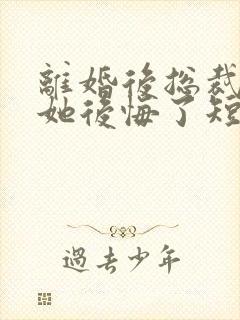 離婚後総裁
她後悔了短
過去少年